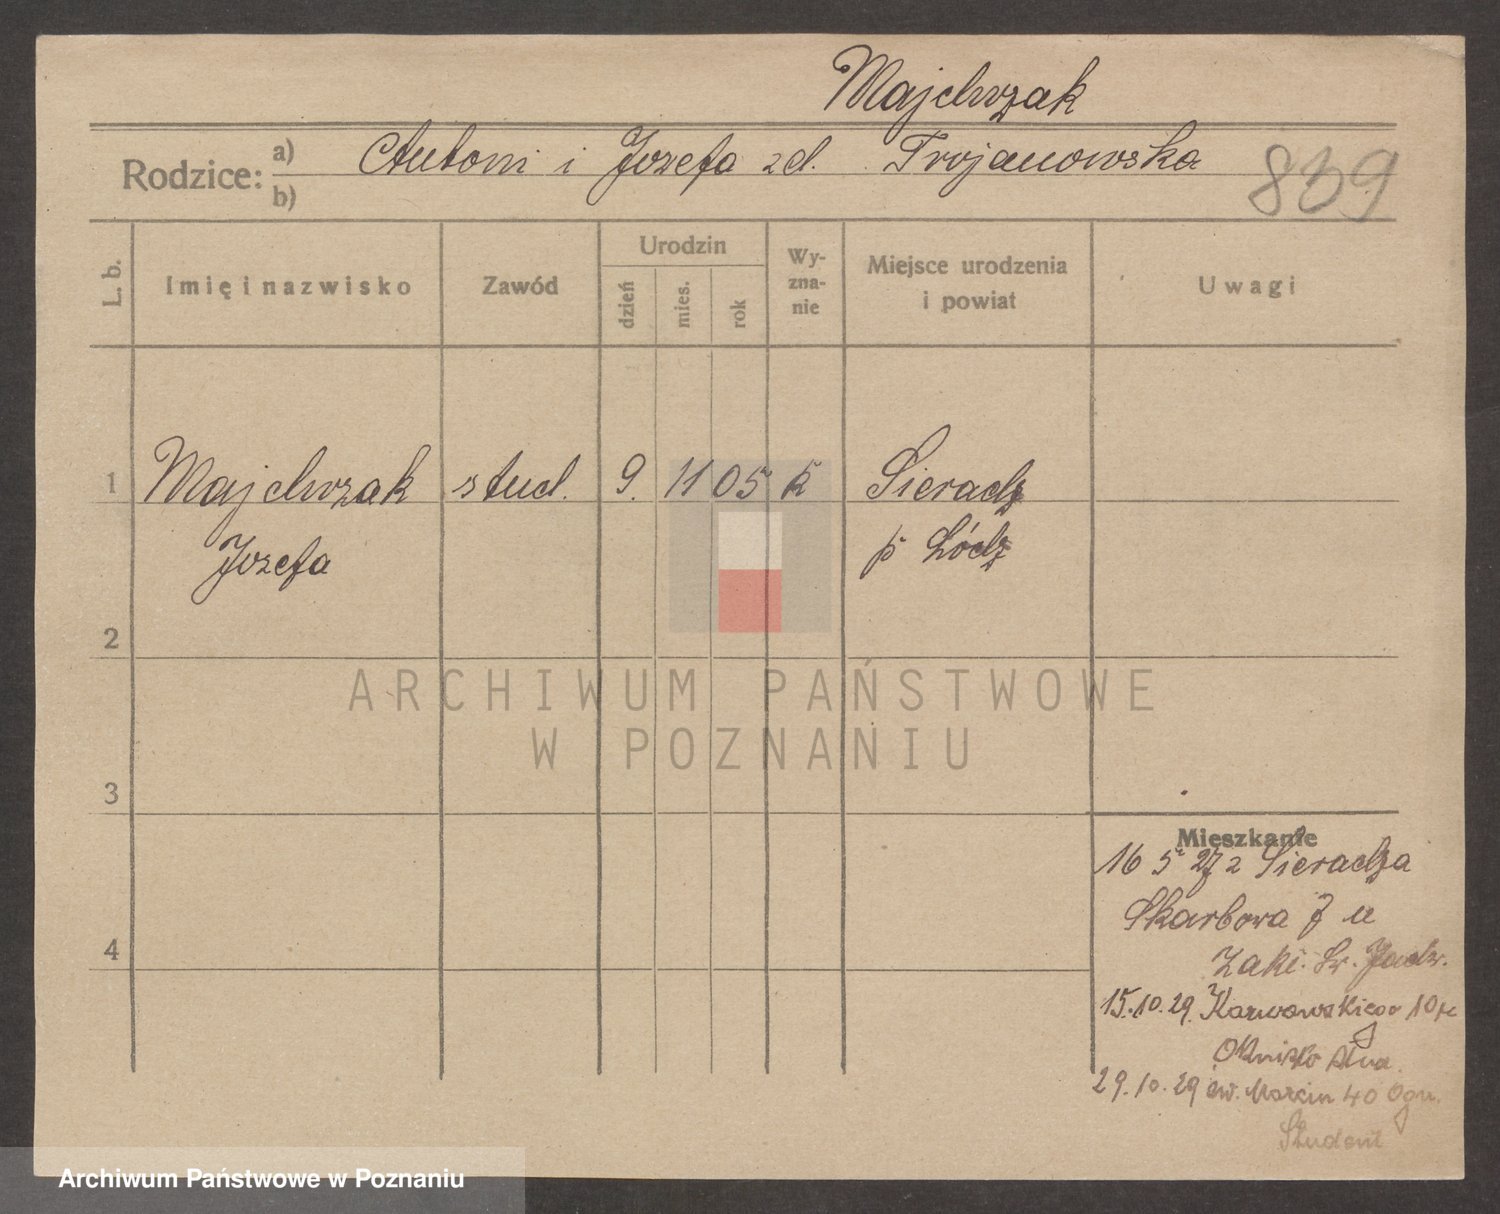 Majchrzak
Rodzice: a) Antoni i Jozefa zd. Trojanowska
b)
839
L. b. Imię i nazwisko Zawód Urodzin dzień mies. rok Wyznanie Miejsce urodzenia i powiat Uwagi
1 Majchrzak stud. 9. 11 05 k Sieradz
Jozefa p Łódź
2
ARCHIWUM PAŃSTWOWE
W POZNANIU
3
Mieszkanie
16 5 27 z Sieradza
Skarbowa 7 u
Zakł. Św. Jadw.
4
15.10.29. Karwowskiego 10
29.10.29 św. Marcin 40
Student
Archiwum Państwowe w Poznaniu